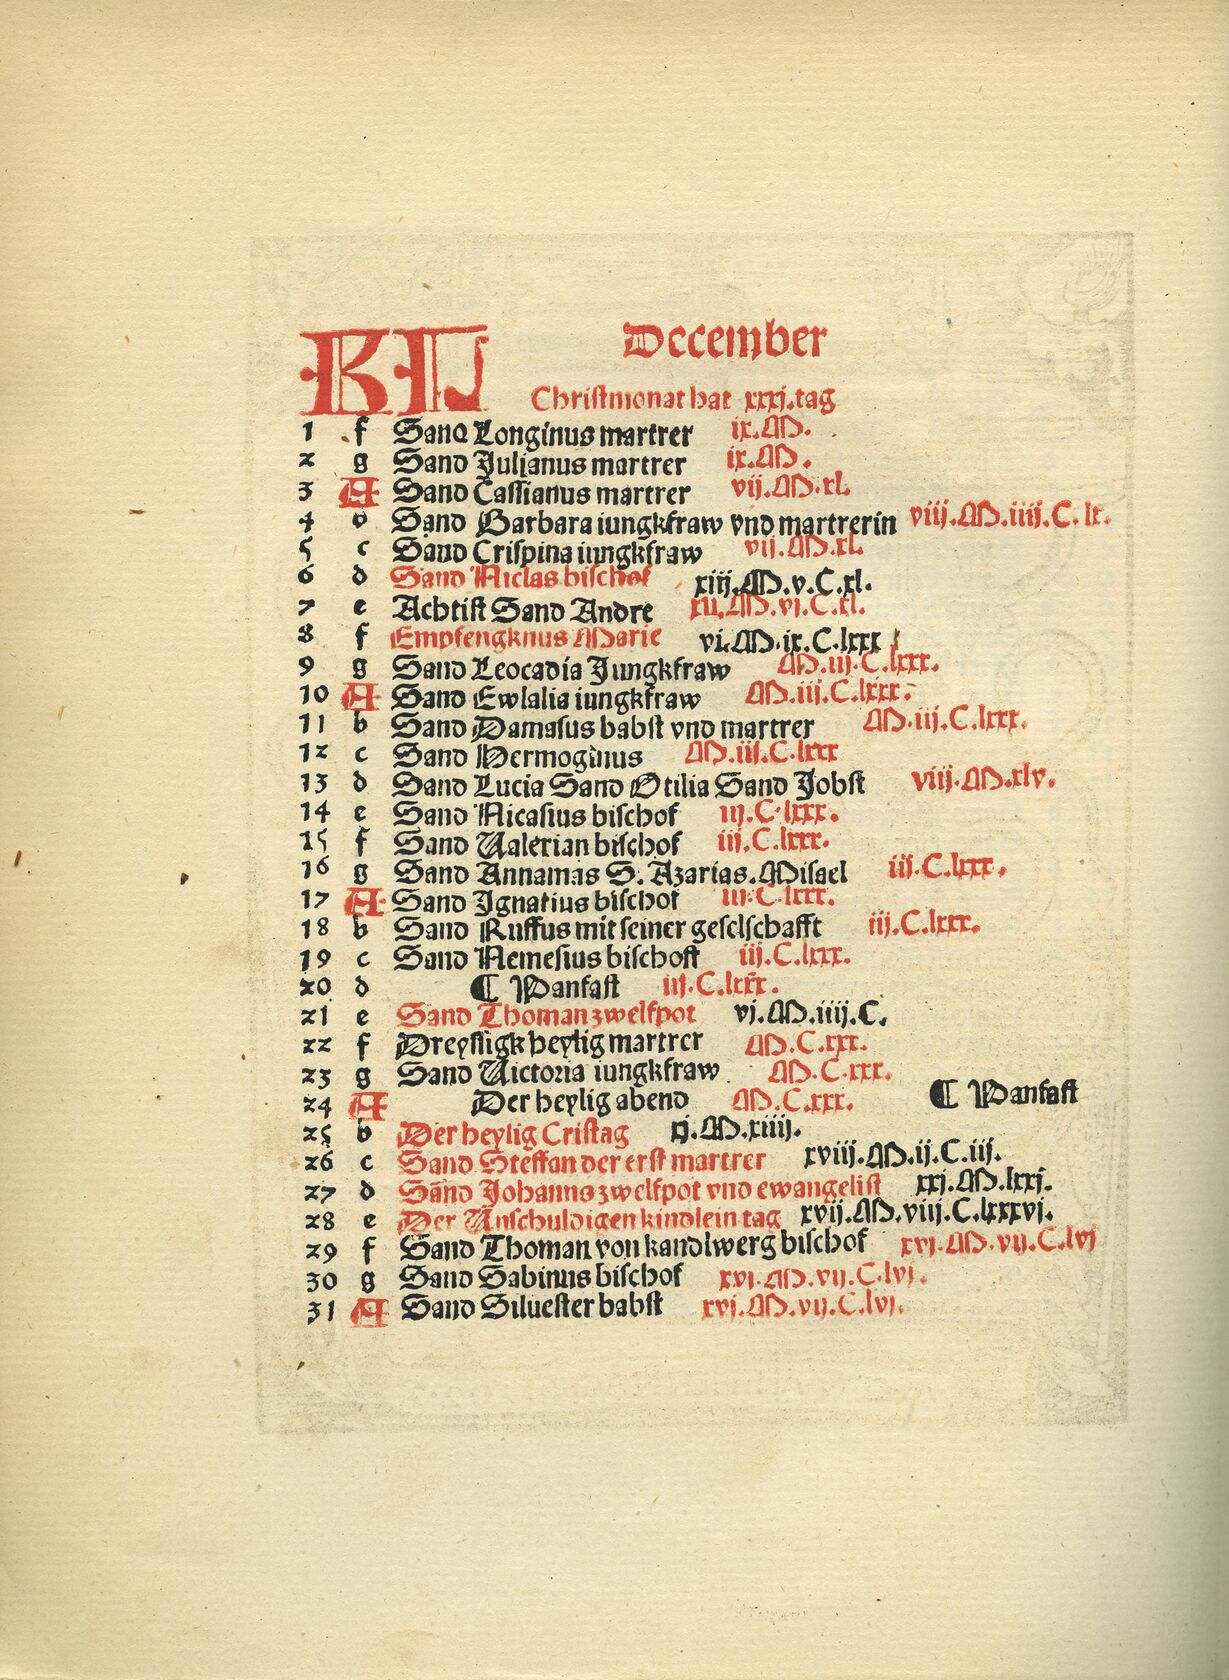 KL December
Christmonat hat xxxj.tag
1 f Sand Longinus martrer ix.M.
2 g Sand Julianus martrer ix.M.
3 A Sand Cassianus martrer vij.M.xl.
4 b Sand Barbara iungkfraw vnd martrerin viij.M.iiij.C.lx.
5 c Sand Crispina iungkfraw vij.M.xl.
6 d Sand Niclas bischof xiij.M.v.C.xl.
7 e Achtist Sand Andre xij.M.vi.C.xl.
8 f Empfengknus Marie vi.M.ix.C.lxxx
9 g Sand Leocadia Jungkfraw M.iij.C.lxxx.
10 A Sand Ewlalia iungkfraw M.iij.C.lxxx.
11 b Sand Damasus babst vnd martrer M.iij.C.lxxx.
12 c Sand Hermoginus M.iij.C.lxxx
13 d Sand Lucia Sand Otilia Sand Jobst viij.M.xlv.
14 e Sand Nicasius bischof iij.C.lxxx.
15 f Sand Valerian bischof iij.C.lxxx.
16 g Sand Annamas S. Azarias.Misael iij.C.lxxx.
17 A Sand Ignatius bischof iij.C.lxxx.
18 b Sand Ruffus mit seiner geselschafft iij.C.lxxx.
19 c Sand Nemesius bischoff iij.C.lxxx.
20 d ¶ Panfast iij.C.lxxx.
21 e Sand Thoman zwelfpot vj.M.iiij.C.
22 f Dreyssigk heylig martrer M.C.xxx.
23 g Sand Victoria iungkfraw M.C.xxx.
24 A Der heylig abend M.C.xxx. ¶ Panfast
25 b Der heylig Cristag xj.M.xiiij.
26 c Sand Steffan der erst martrer xviij.M.ij.C.iij.
27 d Sand Johanns zwelfpot vnd ewangelist xxj.M.lxxj.
28 e Der Unschuldigen kindlein tag xvij.M.viij.C.lxxxvj.
29 f Sand Thoman von kandlwerg bischof xvj.M.vij.C.lvj
30 g Sand Sabinus bischof xvj.M.vij.C.lvj.
31 A Sand Siluester babst xvj.M.vij.C.lvj.